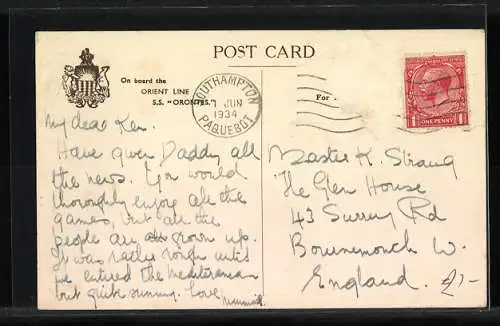 POST CARD
On board the
ORIENT LINE
S.S. "ORONTES."
SOUTHAMPTON
JUN
1934
PAQUEBOT
For
ONE PENNY
My dear Ken.
Have given Daddy all
the news. You would
thoroughly enjoy all the
games, but all the
people are grown up.
It was rather rough until
we entered the Mediterranean
but quite sunny. Love
Master K. Strang
The Glen House
43 Surrey Rd
Bournemouth W.
England.